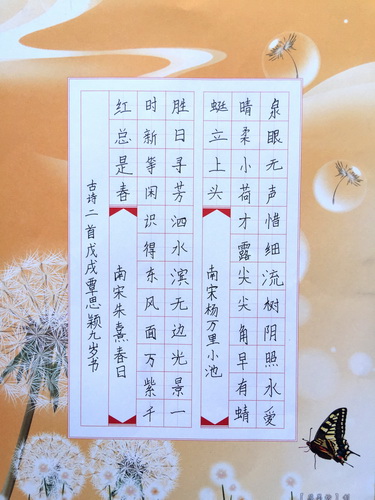 泉眼无声惜细流树阴照水爱
晴柔小荷才露尖尖角早有蜻
蜓立上头
南宋杨万里小池
胜日寻芳泗水滨无边光景一
时新等闲识得东风面万紫千
红总是春
南宋朱熹春日
古诗二首戊戌覃思颖九岁书